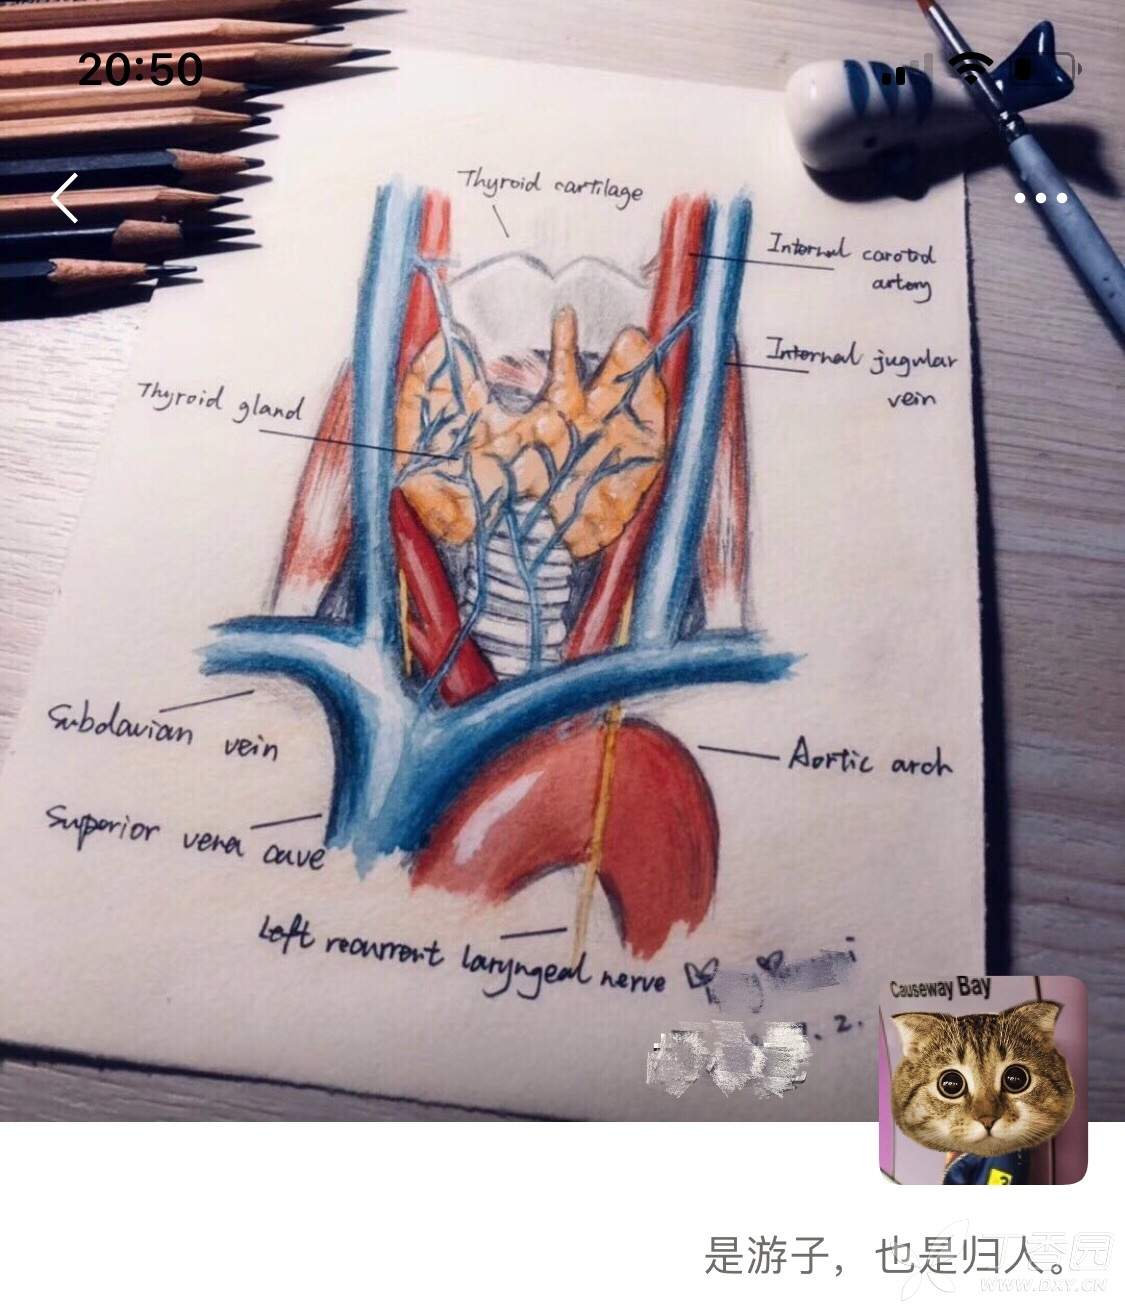 20:50
Thyroid cartilage
Internal carotid
artery
Internal jugular
vein
Thyroid gland
Subclavian vein
Aortic arch
Superior vena cave
Left recurrent laryngeal nerve
. 2.
Causeway Bay
?
是游子，也是归人。
丁香园
WWW.DXY.CN